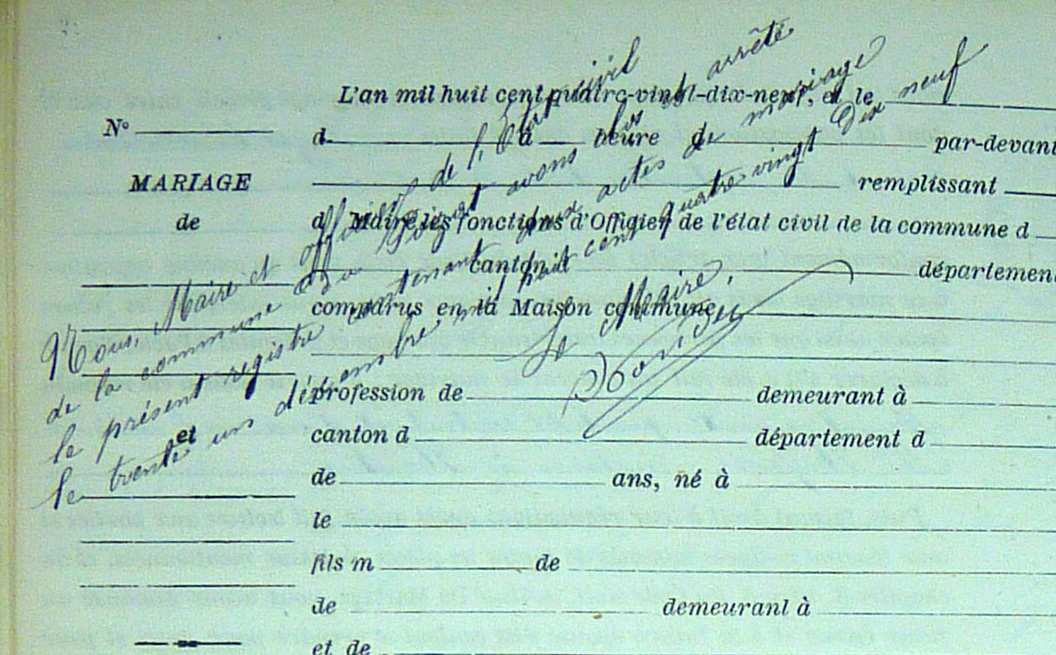 L'an mil huit cent quatre-vingt-dix-neuf, et le
N°
d à heure d par-devant
MARIAGE
remplissant
de
d Maire les fonctions d'Officier de l'état civil de la commune d
canton d département
comparus en la Maison commune,
profession de demeurant à
canton d département d
de ans, né à
le
fils m de
de demeurant à
et de
Nous, Maire et officier de l'Etat civil
de la commune de avons clos et arrêté
le présent registre contenant deux actes de mariage
le trente et un décembre mil huit cent quatre vingt dix neuf
Le Maire,